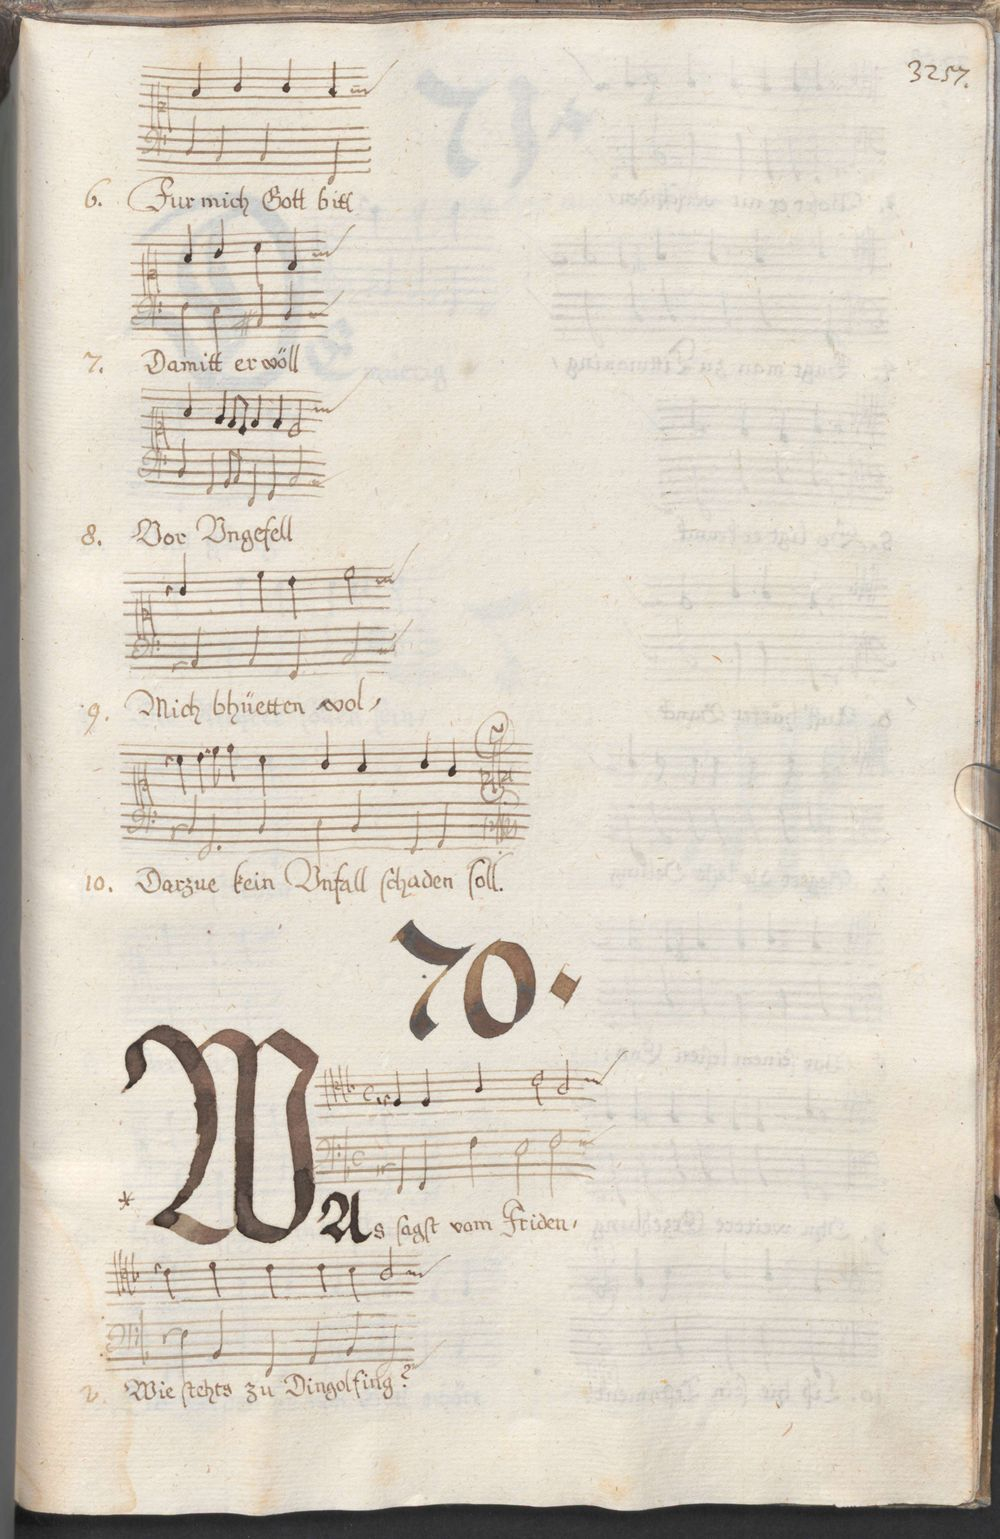 3257.
6. Fur mich Gott bitt
7. Damitt er wöll
8. Vor Vngefell
9. Mich bhüetten wol,
10. Darzue kein Vnfall schaden soll.
70.
* WAs sagst vom Friden,
2. Wie stehts zu Dingolfing?